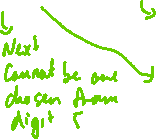 Next
Cannot be one
chosen from
digit 5